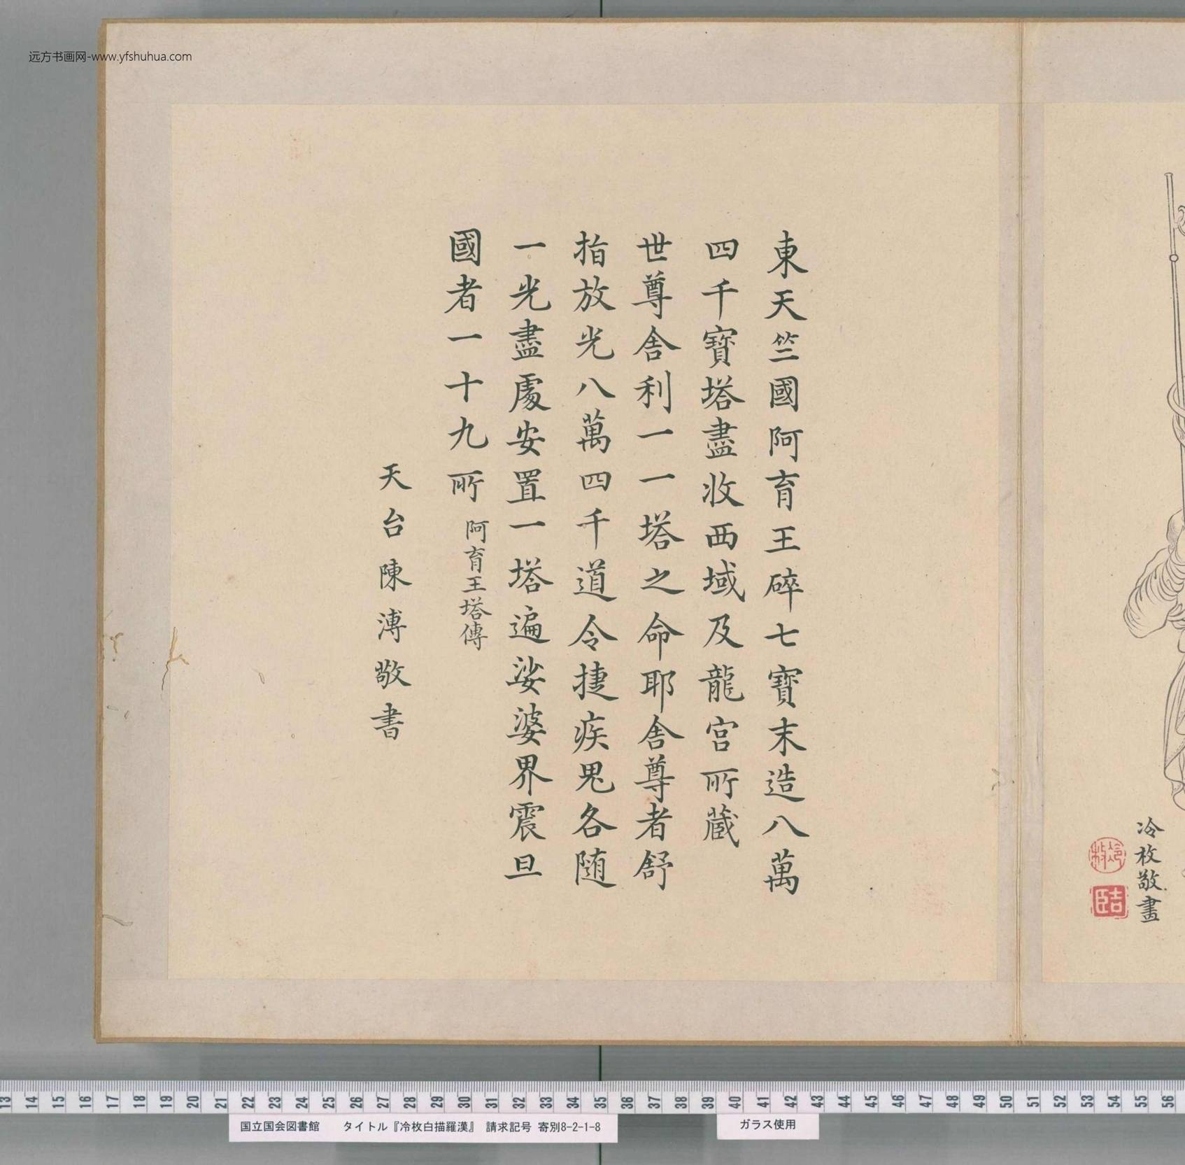 远方书画网-www.yfshuhua.com
東天竺國阿育王碎七寶末造八萬
四千寶塔盡收西域及龍宮所藏
世尊舍利一一塔之命耶舍尊者舒
指放光八萬四千道令捷疾鬼各隨
一光盡處安置一塔遍娑婆界震旦
國者一十九所 阿育王塔傳
天台陳溥敬書
冷枚敬畫
冷枚
吉臣
13 14 15 16 17 18 19 20 21 22 23 24 25 26 27 28 29 30 31 32 33 34 35 36 37 38 39 40 41 42 43 44 45 46 47 48 49 50 51 52 53 54 55 56
国立国会図書館 タイトル『冷枚白描羅漢』 請求記号 寄別8-2-1-8
ガラス使用